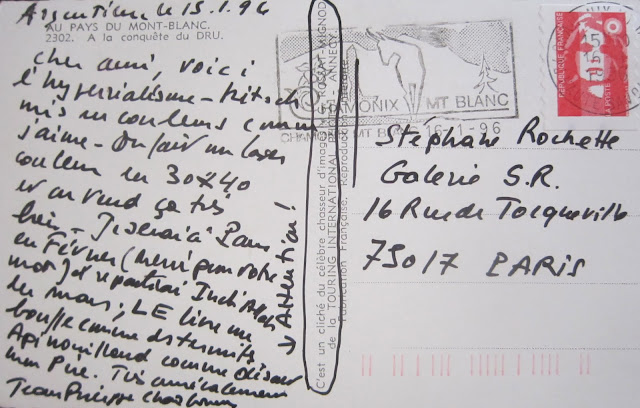 Argentière le 15.1.96
AU PAYS DU MONT-BLANC.
2302. A la conquête du DRU.
cher ami, voici
l'hyperréalisme-kitsch
mis en couleurs comme
j'aime - On fait un
couleur en 30x40
et on vend ça très
bien - Je serai à Paris
en Février (merci pour votre
mot) et repartirai Inch Allah
en mars; LE livre me
bouffe comme
comme disait
mon Père. Très amicalement
Jean Philippe Charbonnier
→ Attention!
C'est un cliché du célèbre chasseur d'images
de la TOURING INTERNATIONAL ANNECY
Publication Française. Reproduction
CHAMONIX MT BLANC
CHAMONIX MT BLANC 16-1-96
REPUBLIQUE FRANÇAISE
LA POSTE
Stéphane Rochette
Galerie S.R.
16 Rue de Tocqueville
75017 PARIS